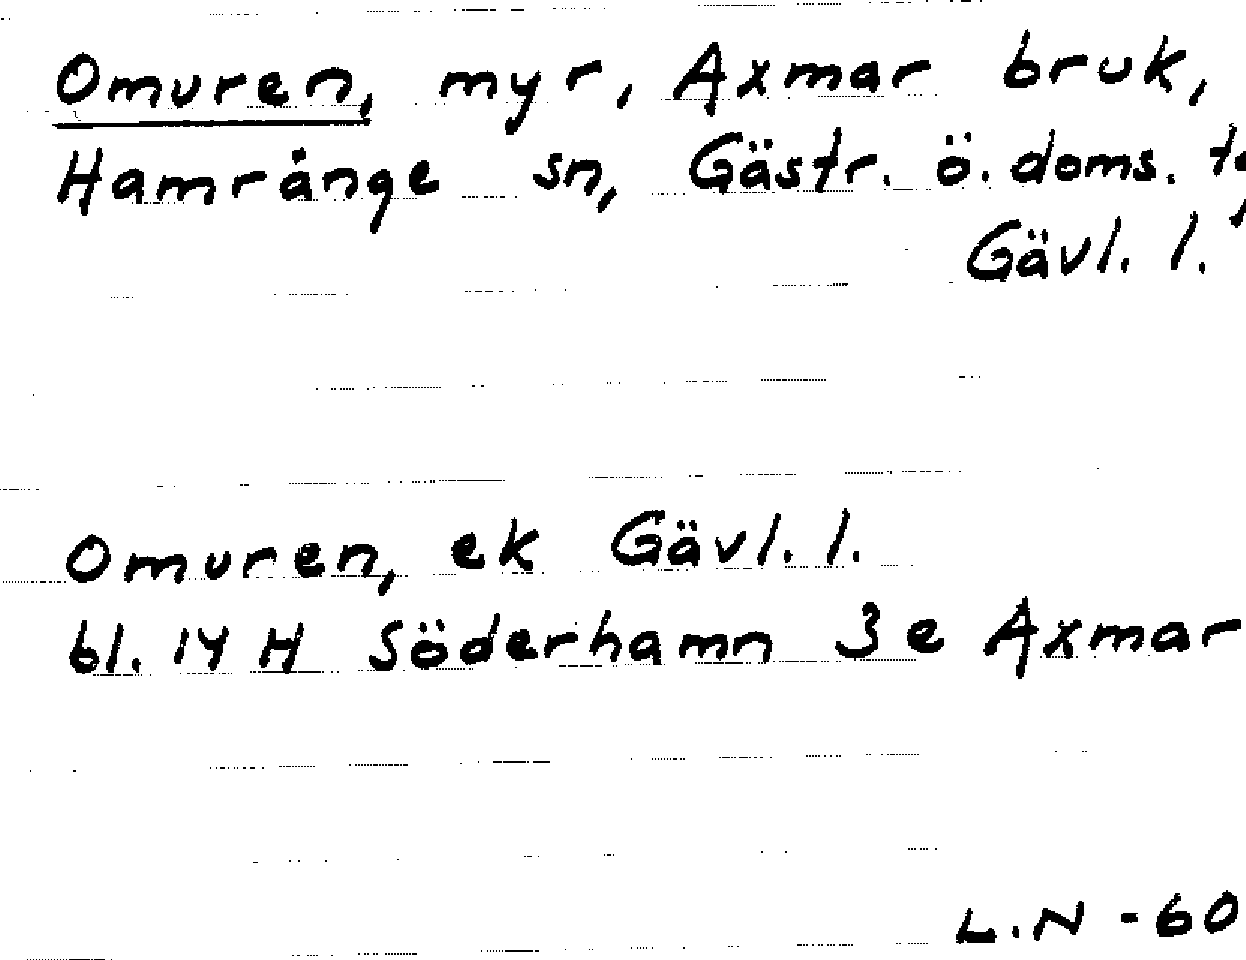 Omuren, myr, Axmar bruk,
Hamrånge sn, Gästr. ö. doms.
Gävl. l.
Omuren, ek Gävl. l.
bl. 14 H Söderhamn 3 e Axmar
L.N - 60